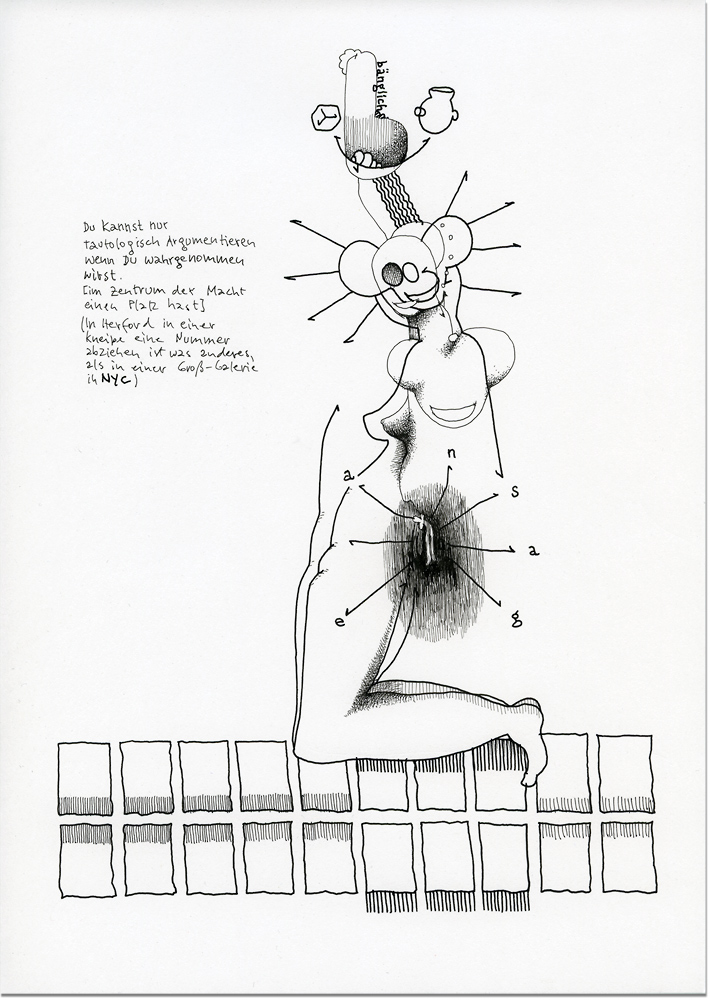 bängliche
Du Kannst nur
tautologisch Argumentieren
wenn Du wahrgenommen
wirst.
[im Zentrum der Macht
einen Platz hast]
(In Herford in einer
Kneipe eine Nummer
abziehen ist was anderes,
als in einer Groß-Galerie
in NYC)
n
a
s
a
e
g